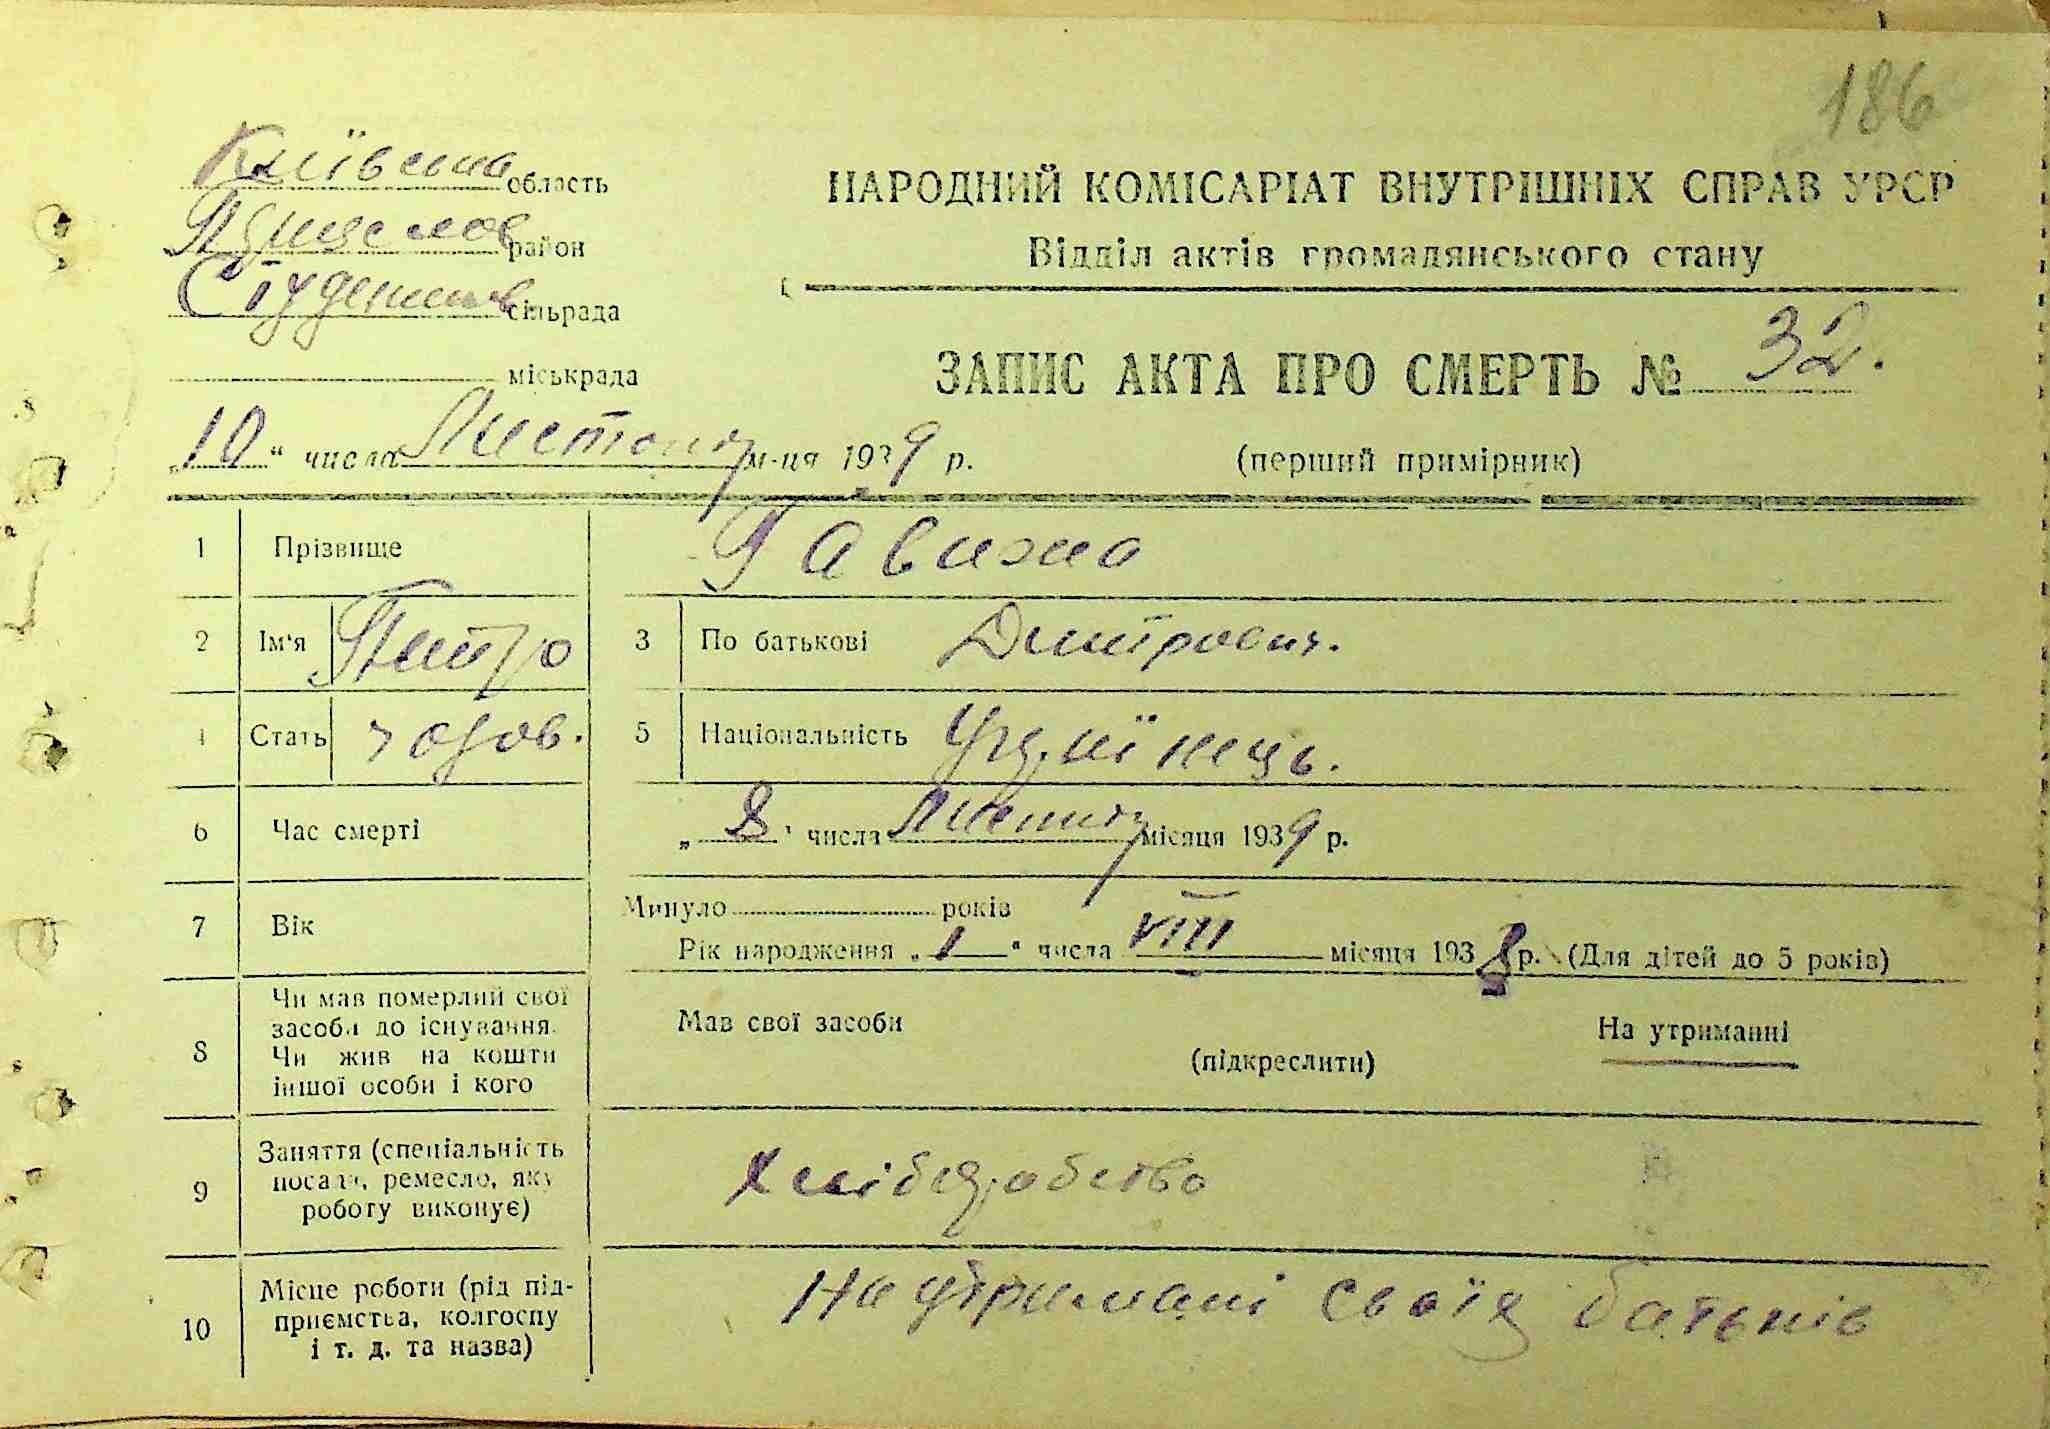 186
Київська область
район
Студеників сільрада
міськрада
НАРОДНИЙ КОМІСАРІАТ ВНУТРІШНІХ СПРАВ УРСР
Відділ актів громадянського стану
ЗАПИС АКТА ПРО СМЕРТЬ № 32.
(перший примірник)
„10“ числа Листопад м-ця 1939 р.
1 Прізвище
2 Ім'я Питро 3 По батькові Дмитрович.
4 Стать чолов. 5 Національність Українець.
6 Час смерті „8“ числа Листопад місяця 1939 р.
7 Вік Минуло років
Рік народження „1“ числа VIII місяця 1938 р. (Для дітей до 5 років)
8 Чи мав померлий свої
засоби до існування.
Чи жив на кошти
іншої особи і кого
Мав свої засоби (підкреслити) На утриманні
9 Заняття (спеціальність
посада, ремесло, яку
роботу виконує)
хліборобство
10 Місце роботи (рід під-
приємства, колгоспу
і т. д. та назва)
На утримані своїх батьків